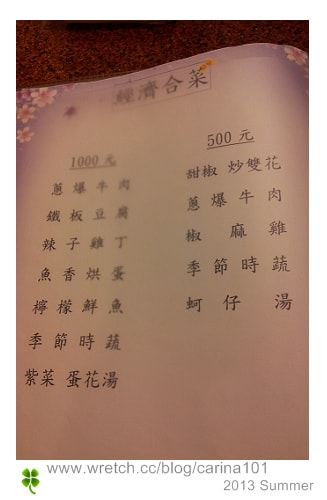 經濟合菜
1000 元
蔥爆牛肉
鐵板豆腐
辣子雞丁
魚香烘蛋
檸檬鮮魚
季節時蔬
紫菜 蛋花湯
500 元
甜椒 炒雙花
蔥爆牛肉
椒麻雞
季節時蔬
蚵仔湯
www.wretch.cc/blog/carina101
2013 Summer